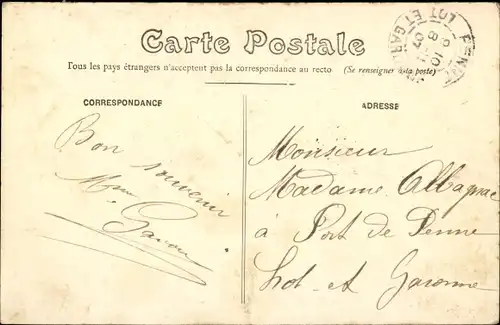 Carte Postale
Tous les pays étrangers n'acceptent pas la correspondance au recto (Se renseigner à la poste)
CORRESPONDANCE
Bon souvenir
Mme
ADRESSE
Monsieur
Madame Albagnac
à Port de Penne
Lot et Garonne
PENNE
LOT ET GARONNE
8 10
07